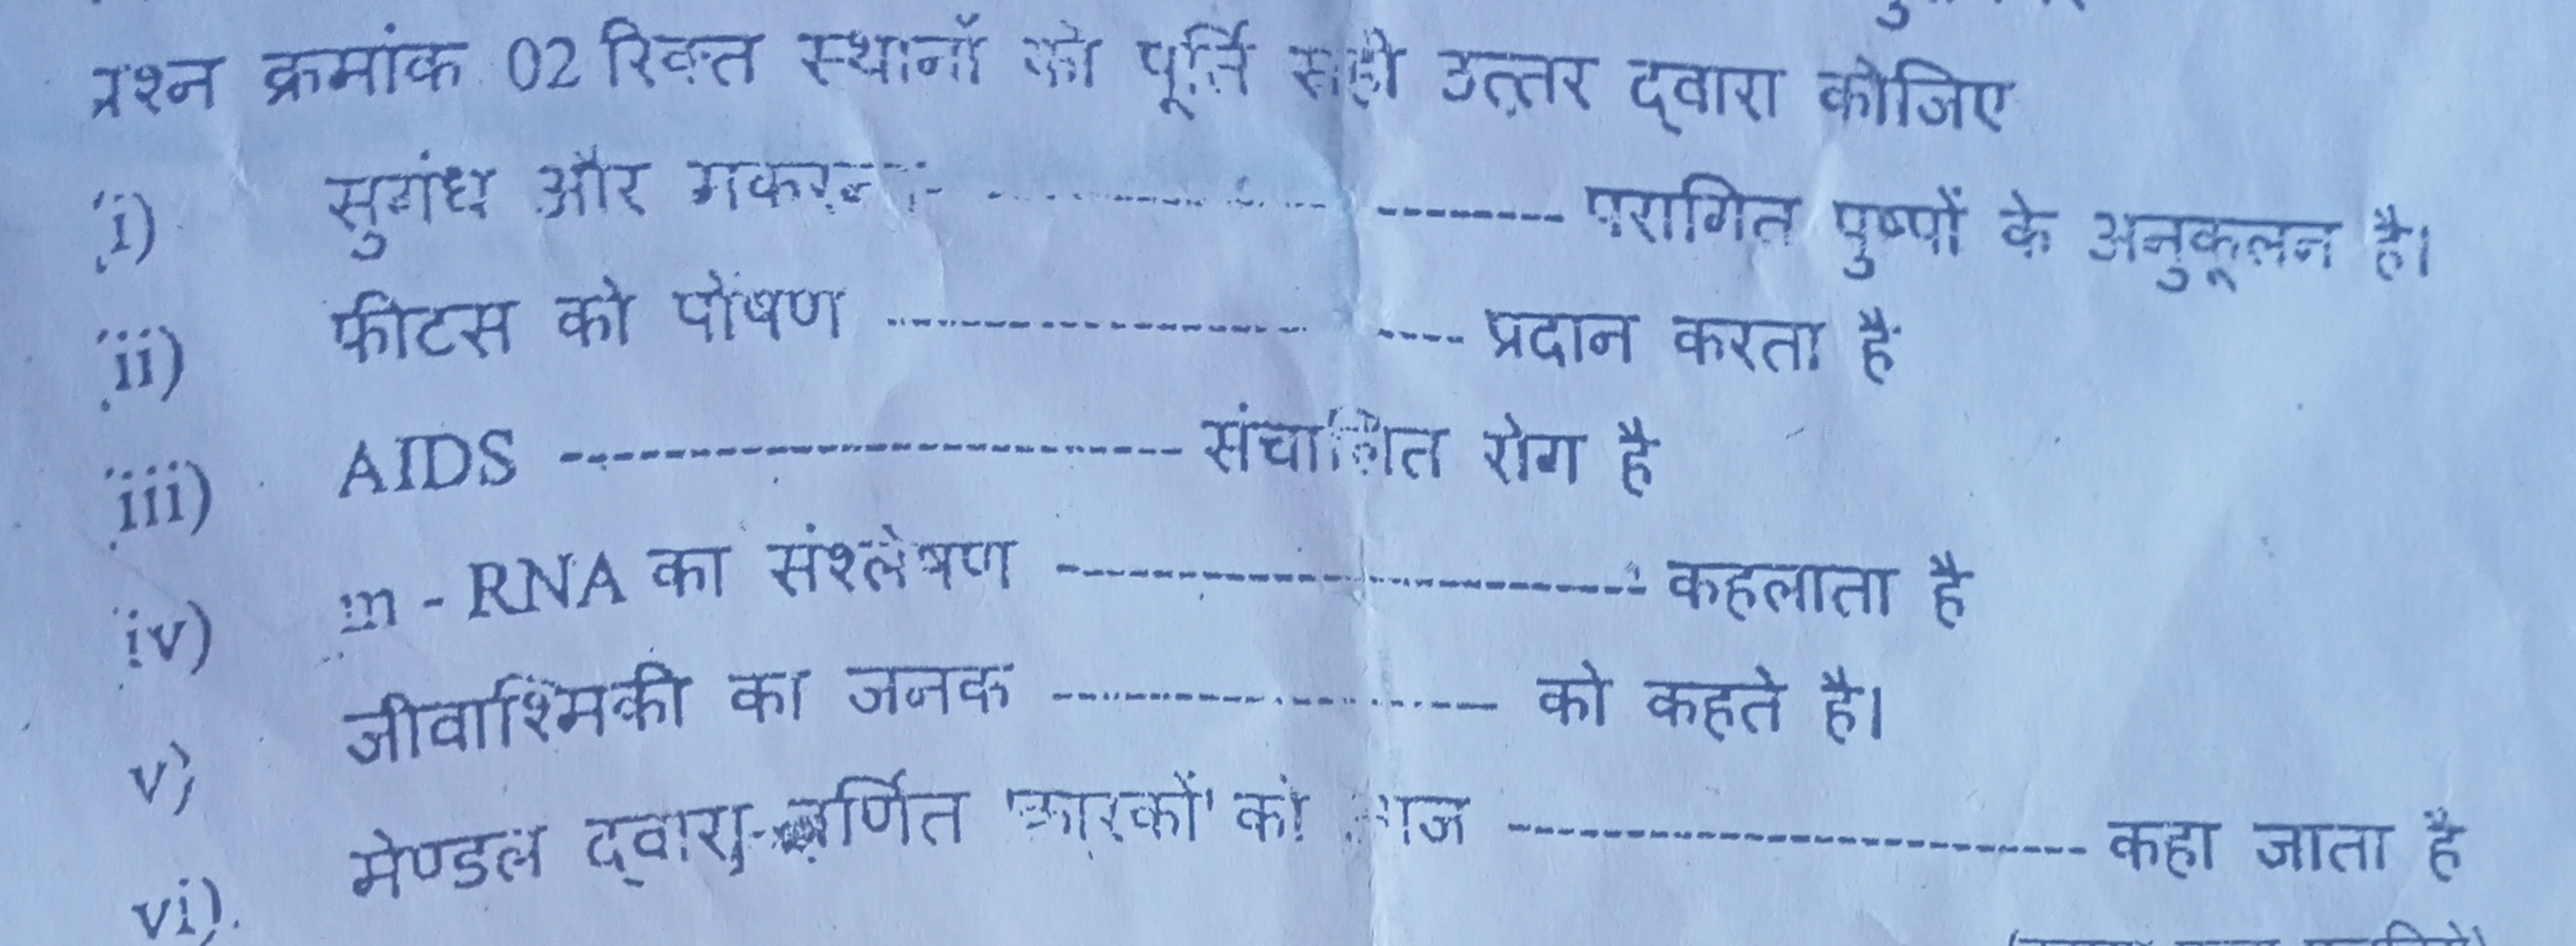 प्रश्न क्रमांक 02 रिक्त स्थानों की पूर्ति सही उत्तर द्वारा कीजिए
i) सुगंध और मकरन्द ---------- परागित पुष्पों के अनुकूलन है।
ii) फीटस को पोषण ---------- प्रदान करता है
iii) AIDS ---------- संचालित रोग है
iv) m - RNA का संश्लेषण ---------- कहलाता है
v) जीवाश्मिकी का जनक ---------- को कहते है।
vi). मेण्डल द्वारा वर्णित 'कारकों' को आज ---------- कहा जाता है